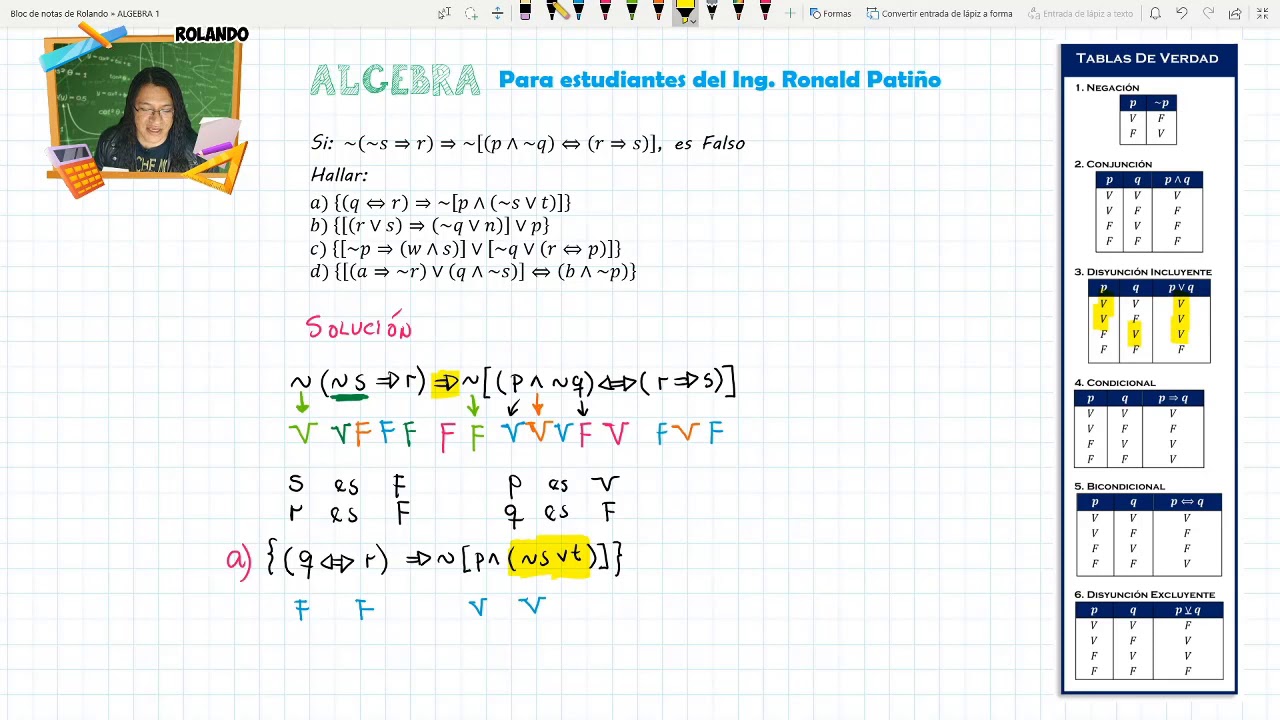 Bloc de notas de Rolando » ALGEBRA 1
Formas
Convertir entrada de lápiz a forma
Entrada de lápiz a texto
ROLANDO
CHEM
ALGEBRA Para estudiantes del Ing. Ronald Patiño
Si: ~(~s ⇒ r) ⇒ ~[(p ∧ ~q) ⇔ (r ⇒ s)], es Falso
Hallar:
a) {(q ⇔ r) ⇒ ~[p ∧ (~s ∨ t)]}
b) {[(r ∨ s) ⇒ (~q ∨ n)] ∨ p}
c) {[~p ⇒ (w ∧ s)] ∨ [~q ∨ (r ⇔ p)]}
d) {[(a ⇒ ~r) ∨ (q ∧ ~s)] ⇔ (b ∧ ~p)}
SOLUCIÓN
~ (~s ⇒ r) ⇒ ~[(p ∧ ~q) ⇔ (r ⇒ s)]
V V F F F F F V V V F V F V F
s es F p es V
r es F q es F
a) {(q ⇔ r) ⇒ ~[p ∧ (~s ∨ t)]}
F F V V
TABLAS DE VERDAD
1. NEGACIÓN
p ~p
V F
F V
2. CONJUNCIÓN
p q p ∧ q
V V V
V F F
F V F
F F F
3. DISYUNCIÓN INCLUYENTE
p q p ∨ q
V V V
V F V
F V V
F F F
4. CONDICIONAL
p q p ⇒ q
V V V
V F F
F V V
F F V
5. BICONDICIONAL
p q p ⇔ q
V V V
V F F
F V F
F F V
6. DISYUNCIÓN EXCLUYENTE
p q p ⊻ q
V V F
V F V
F V V
F F F